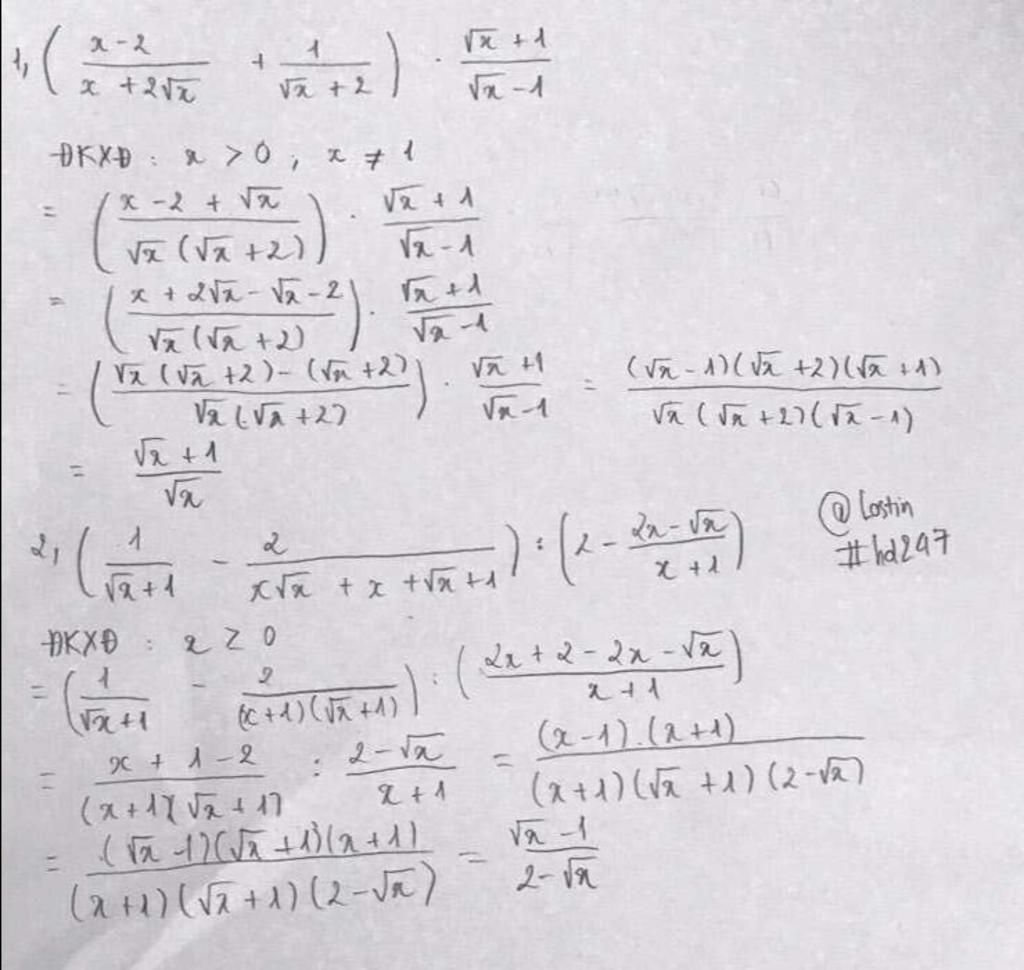 1, ( (x-2)/(x+2√x) + 1/(√x+2) ) · (√x+1)/(√x-1)
ĐKXĐ : x > 0 ; x ≠ 1
= ( (x-2+√x)/(√x(√x+2)) ) · (√x+1)/(√x-1)
= ( (x+2√x-√x-2)/(√x(√x+2)) ) · (√x+1)/(√x-1)
= ( (√x(√x+2)-(√x+2))/(√x(√x+2)) ) · (√x+1)/(√x-1) = ((√x-1)(√x+2)(√x+1))/(√x(√x+2)(√x-1))
= (√x+1)/√x
@Lostin
#hd247
2, ( 1/(√x+1) - 2/(x√x+x+√x+1) ) : ( 2 - (2x-√x)/(x+1) )
ĐKXĐ : x ≥ 0
= ( 1/(√x+1) - 2/((x+1)(√x+1)) ) : ( (2x+2-2x-√x)/(x+1) )
= (x+1-2)/((x+1)(√x+1)) : (2-√x)/(x+1) = ((x-1).(x+1))/((x+1)(√x+1)(2-√x))
= ((√x-1)(√x+1)(x+1))/((x+1)(√x+1)(2-√x)) = (√x-1)/(2-√x)